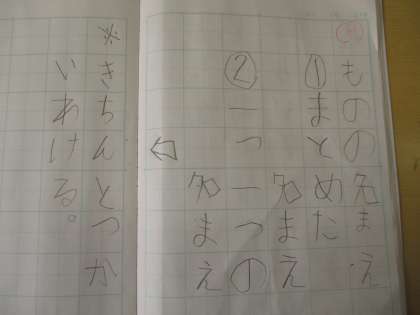 ものの名まえ
①まとめた
名まえ
②一つ一つの
名まえ
⇦
※きちんとつか
いわける。